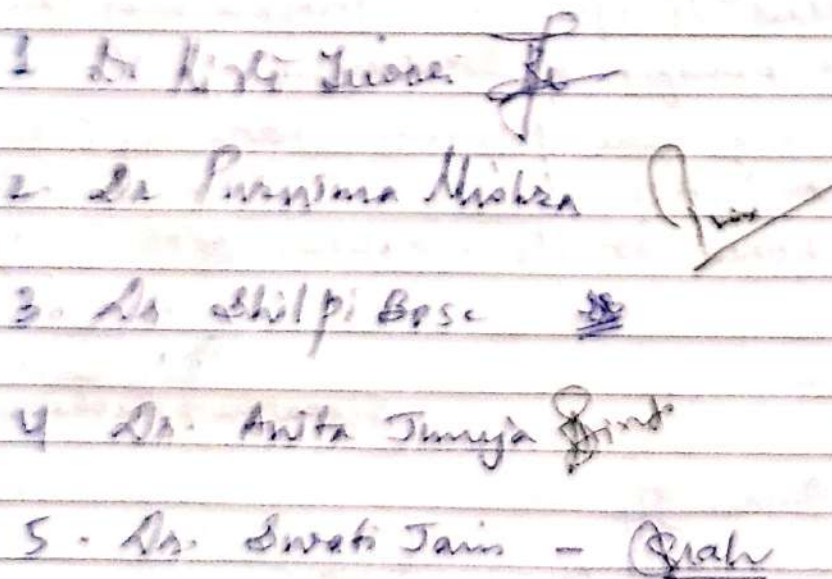 1 Dr Kirti
2. Dr Purnima Mishra
3. Dr Shilpi Bose
4 Dr. Anita Juneja
5. Dr. Swati Jain -